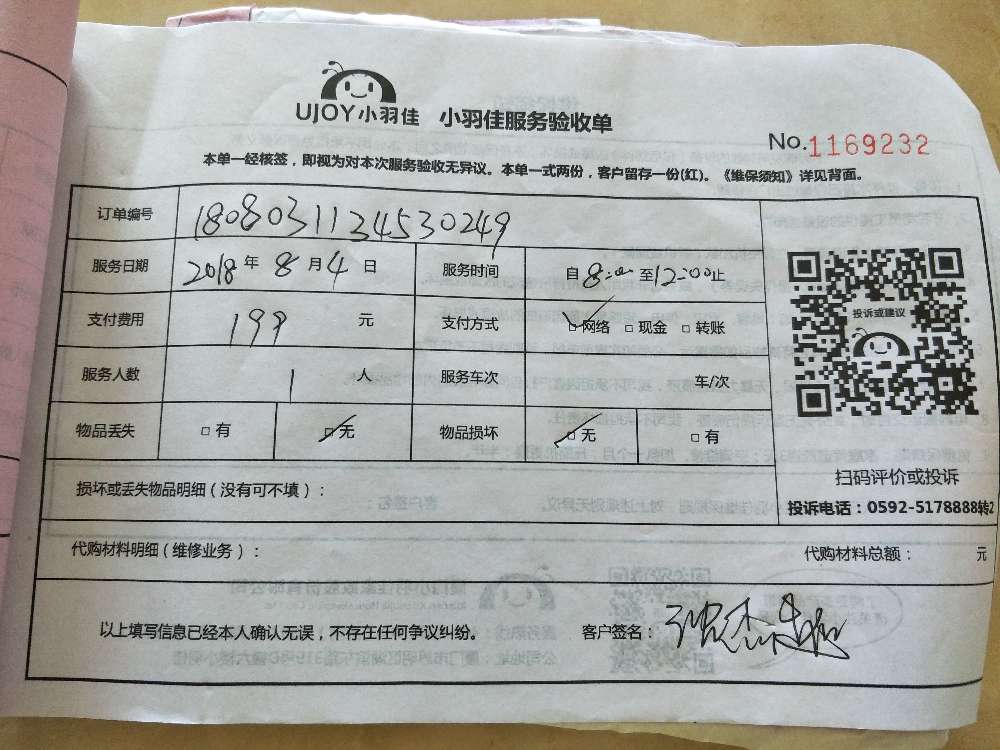 UJOY小羽佳 小羽佳服务验收单
No.1169232
本单一经核签，即视为对本次服务验收无异议。本单一式两份，客户留存一份(红)。《维保须知》详见背面。
订单编号 18080311134530249
服务日期 2018年8月4日 服务时间 自8:00至12:00止
支付费用 199元 支付方式 ☑网络 □现金 □转账
投诉或建议
服务人数 1人 服务车次 车/次
物品丢失 □有 ☑无 物品损坏 ☑无 □有
扫码评价或投诉
损坏或丢失物品明细（没有可不填）：
投诉电话：0592-5178888转2
代购材料明细（维修业务）： 代购材料总额： 元
以上填写信息已经本人确认无误，不存在任何争议纠纷。 客户签名：